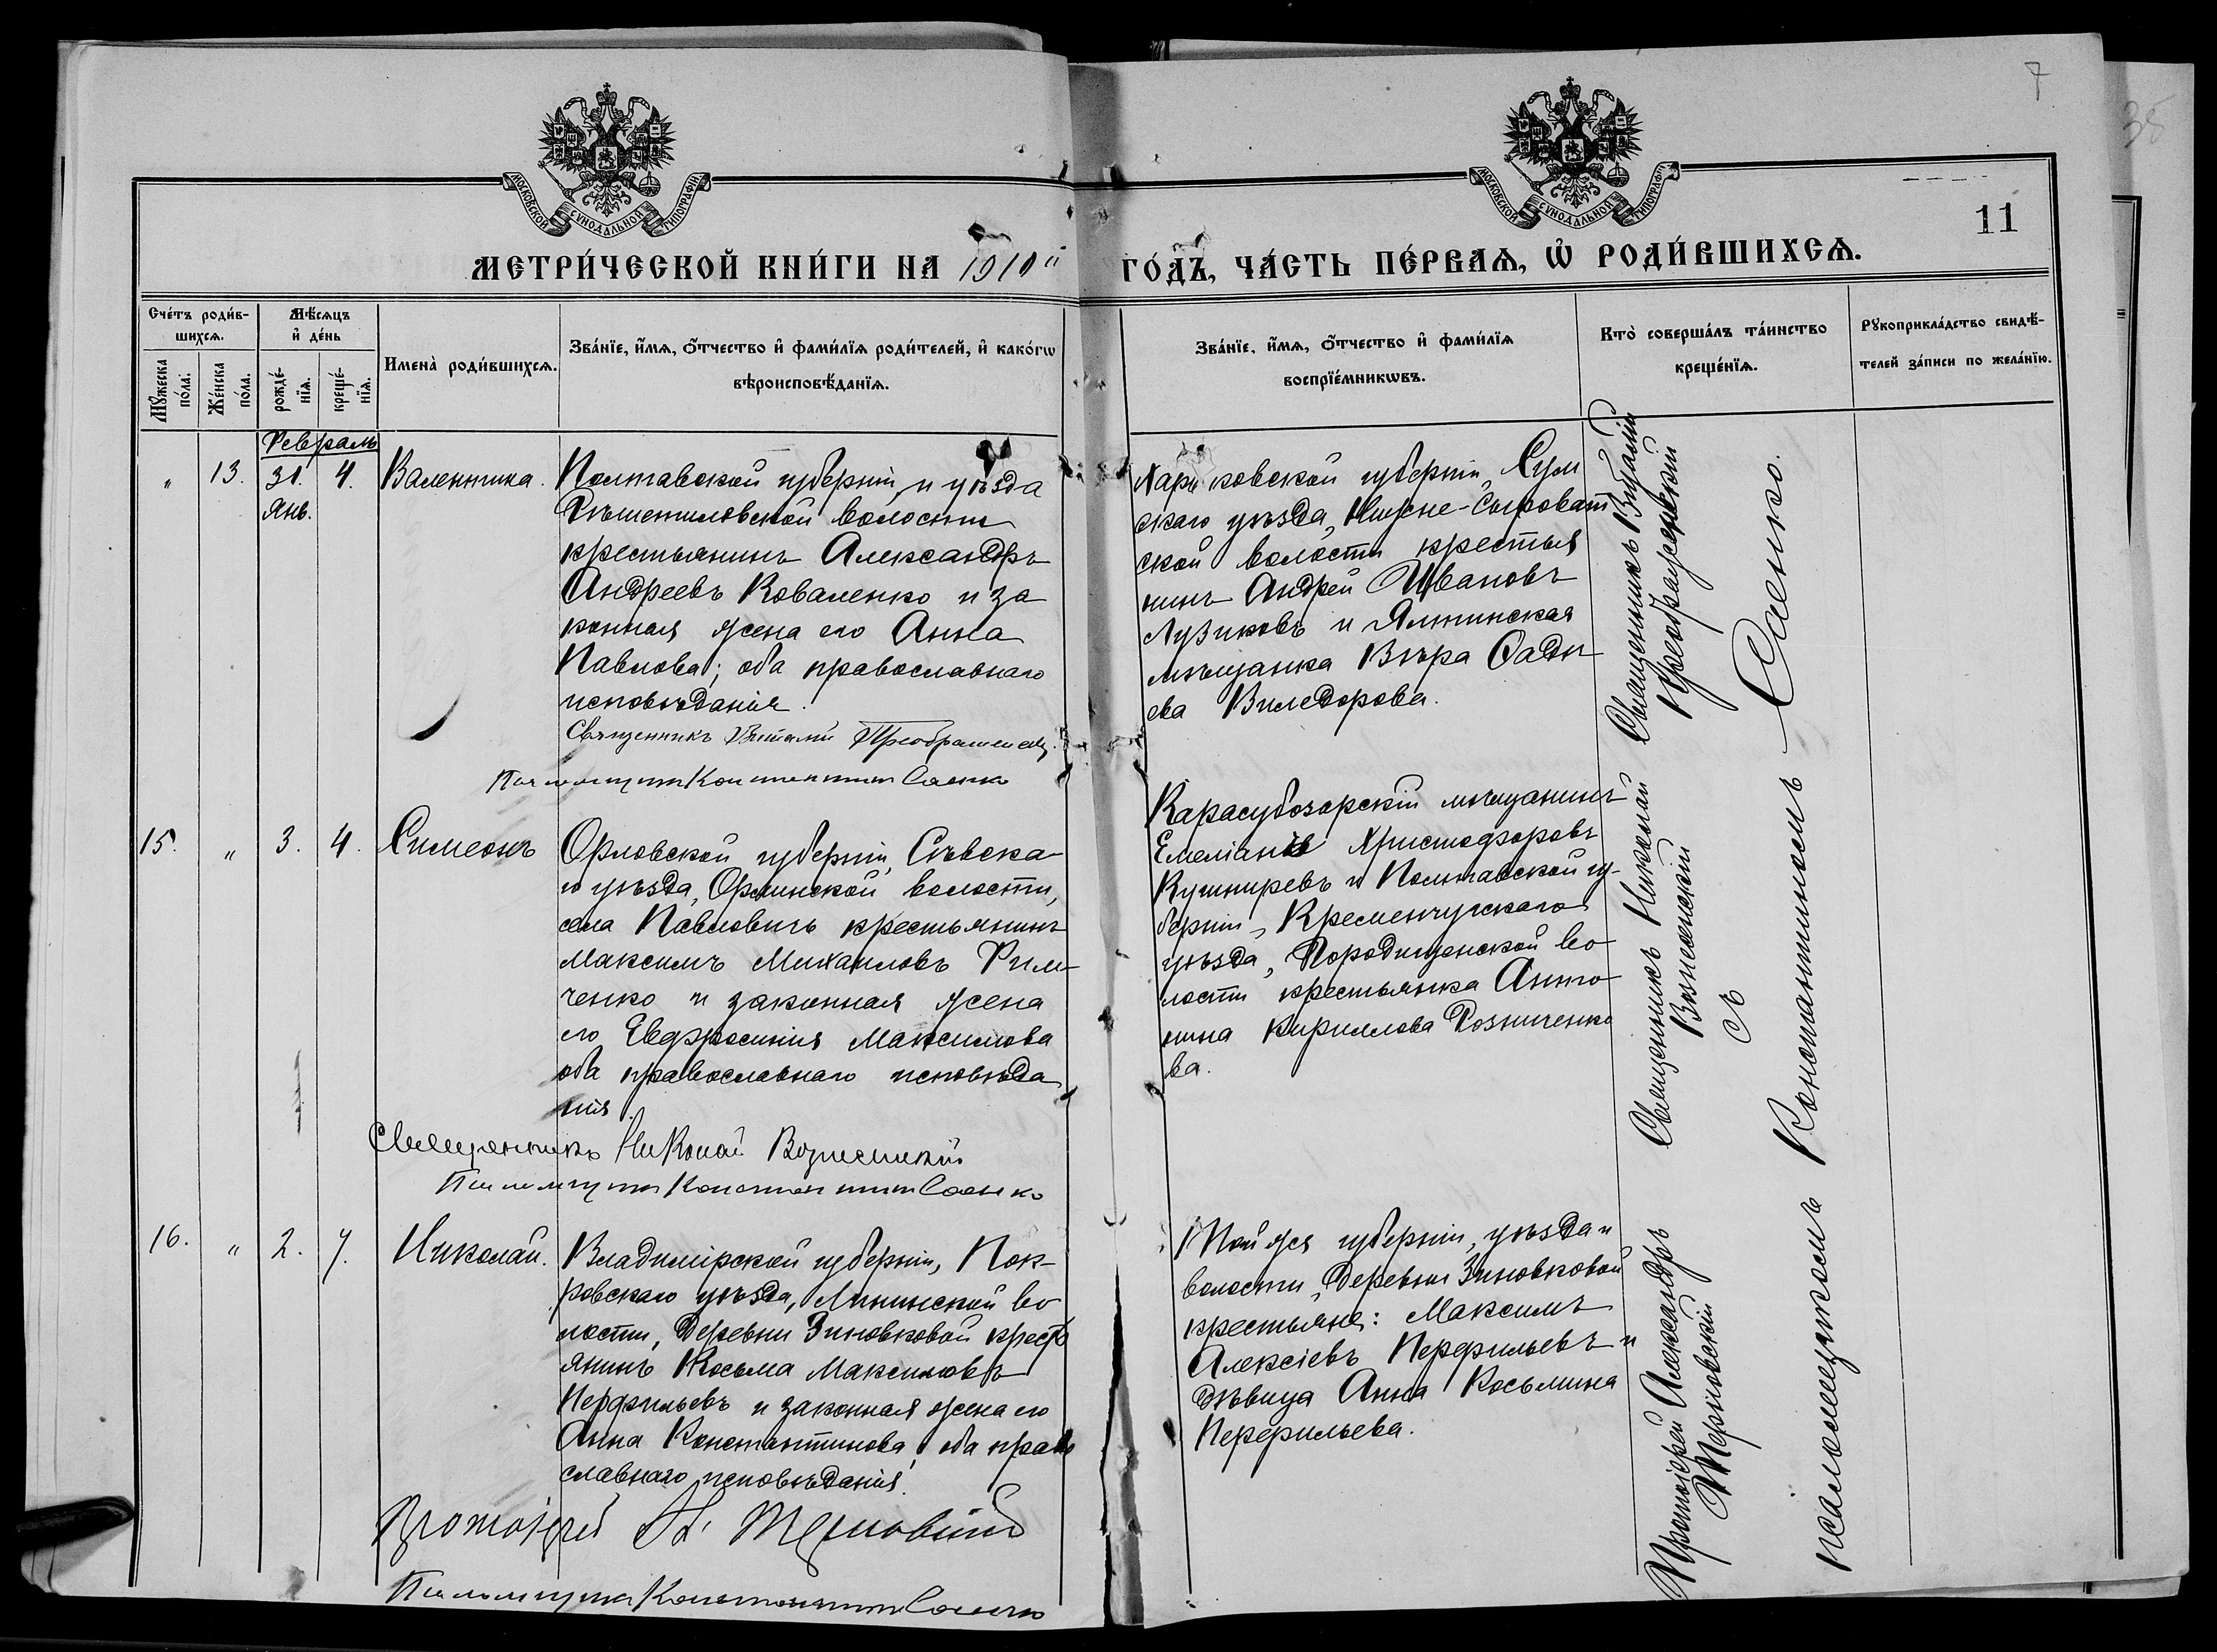 7
38
11
МОСКОВСКОЙ СѴНОДАЛЬНОЙ ТИПОГРАФІИ
МОСКОВСКОЙ СѴНОДАЛЬНОЙ ТИПОГРАФІИ
МЕТРИ́ЧЕСКОЙ КНИ́ГИ НА 1910й ГО́ДЪ, ЧА́СТЬ ПЕ́РВАѦ, Ѡ҆ РОДИ́ВШИХСѦ.
Сче́тъ роди́в-
шихсѧ.
Мꙋ́жеска по́ла.
Же́нска по́ла.
Мѣ́сѧцъ
и҆ де́нь
рожде́-
нїѧ.
креще́-
нїѧ.
Имена̀ роди́вшихсѧ.
Зва́нїе, и҆́мѧ, ѻ҆́тчество и҆ фами́лїѧ роди́телей, и҆ како́гѡ
вѣроисповѣ́данїѧ.
Зва́нїе, и҆́мѧ, ѻ҆́тчество и҆ фами́лїѧ
воспрїе́мникѡвъ.
Кто̀ соверша́лъ та́инство
креще́нїѧ.
Рꙋкоприкла́дство свидѣ́-
телей за́писи по жела́нїю.
Февраль
" 13. 31. 4. Валентина.
Янв.
Полтавской губерніи, и уѣзда
волости
крестьянинъ Александръ
Андреевъ Коваленко и за
конная жена его Анна
Павлова; оба православнаго
исповѣданія.
Священникъ Виталій Преображенскій
Псаломщикъ Константинъ Саенко
Харьковской губерніи, Сум
скаго уѣзда, Нижне-Сыроват
ской волости крестья
нинъ Андрей Ивановъ
Лузиковъ и Ялтинская
мѣщанка Вѣра Садо
ева Виледорова.
Священникъ Виталій
Преображенскій
15. " 3. 4. Симеонъ
Орловской губерніи, Сѣвска
го уѣзда, волости,
села Павловичъ крестьянинъ
Максимъ Михаиловъ Рим
ченко и законная жена
его Евфросинія Максимова
оба православнаго исповѣда
нія.
Священникъ Николай Вознесенскій
Псаломщикъ Константинъ Саенко
Карасубазарскій мѣщанинъ
Емеліанъ Христофоровъ
Кушниревъ и Полтавской гу-
берніи, Кременчугскаго
уѣзда, Городищенской во
лости крестьянка Анто
нина Кириллова Розниченко
ва.
Священникъ Николай
Вознесенскій
съ
псаломщикомъ Константиномъ Саенко.
16. " 2. 7. Николай.
Владимірской губерніи, Пок-
ровскаго уѣзда, Липинской во
лости, деревни Зиновковой кресть
янинъ Косьма Максимовъ
Перфильевъ и законная жена его
Анна Константинова, оба право
славнаго исповѣданія.
Протоіерей А. Терновскій
Псаломщикъ Константинъ Саенко
Той же губерніи, уѣзда и
волости, деревни Зиновковой
крестьяне: Максимъ
Алексіевъ Перфильевъ и
дѣвица Анна Косьмина
Перфильева.
Протоіерей Александръ
Терновскій